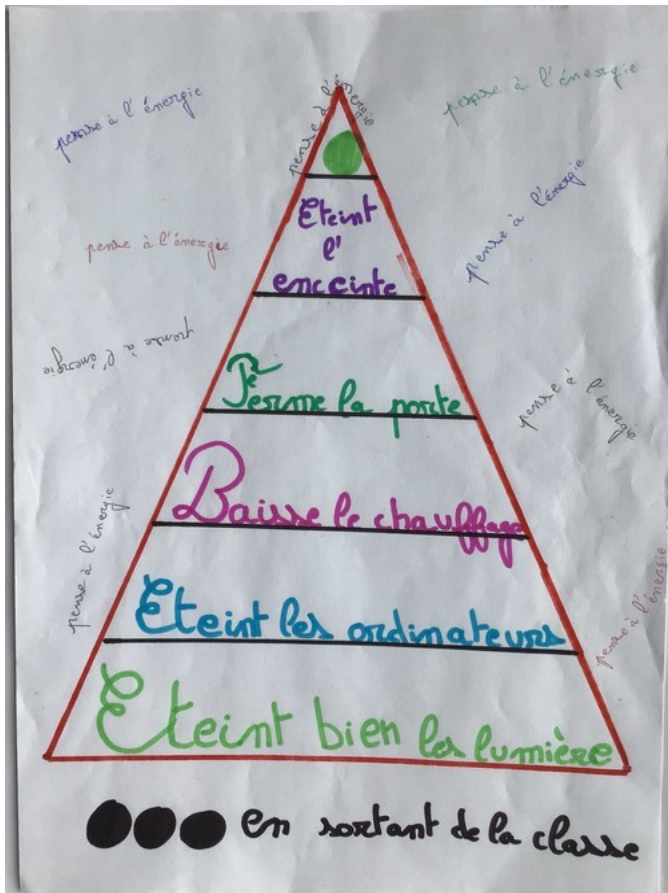 pense à l'énergie
pense à l'énergie
pense à l'énergie
pense à l'énergie
pense à l'énergie
pense à l'énergie
pense à l'énergie
pense à l'énergie
pense à l'énergie
Eteint
l'
enceinte
Ferme la porte
Baisse le chauffage
Eteint les ordinateurs
Eteint bien les lumière
en sortant de la classe